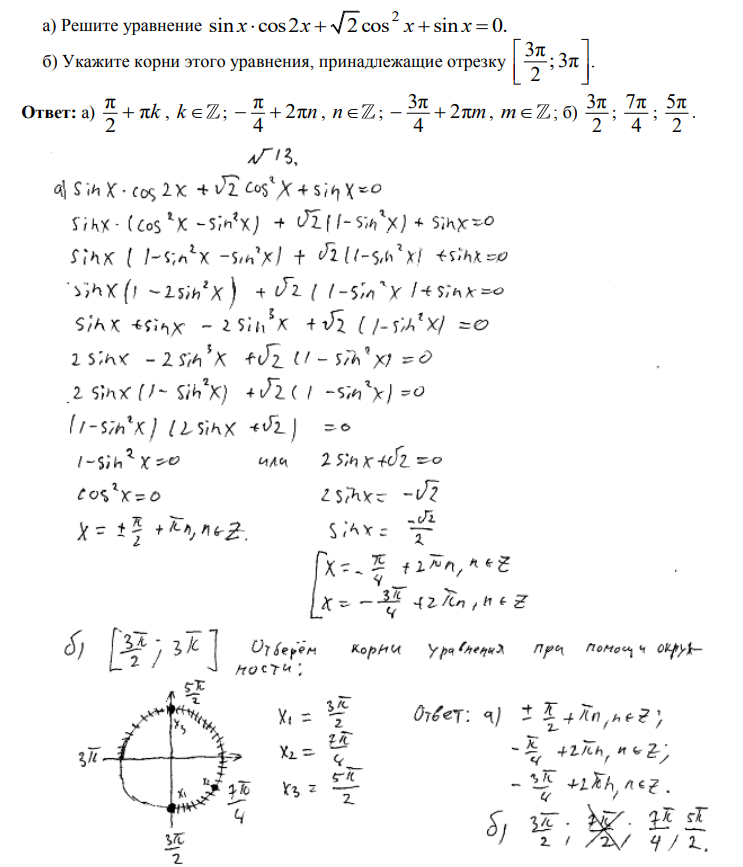 а) Решите уравнение sin x · cos 2x + √2 cos² x + sin x = 0.
б) Укажите корни этого уравнения, принадлежащие отрезку [3π/2; 3π].
Ответ: а) π/2 + πk, k ∈ ℤ; −π/4 + 2πn, n ∈ ℤ; −3π/4 + 2πm, m ∈ ℤ; б) 3π/2; 7π/4; 5π/2.
№13.
а) sin x · cos 2x + √2 cos² x + sin x = 0
sin x · (cos² x − sin² x) + √2 (1 − sin² x) + sin x = 0
sin x (1 − sin² x − sin² x) + √2 (1 − sin² x) + sin x = 0
sin x (1 − 2 sin² x) + √2 (1 − sin² x) + sin x = 0
sin x + sin x − 2 sin³ x + √2 (1 − sin² x) = 0
2 sin x − 2 sin³ x + √2 (1 − sin² x) = 0
2 sin x (1 − sin² x) + √2 (1 − sin² x) = 0
(1 − sin² x) (2 sin x + √2) = 0
1 − sin² x = 0 или 2 sin x + √2 = 0
cos² x = 0 2 sin x = −√2
x = ± π/2 + πn, n ∈ Z. sin x = −√2/2
[x = − π/4 + 2πn, n ∈ Z
x = − 3π/4 + 2πn, n ∈ Z
б) [3π/2; 3π] Отберём корни уравнения при помощи окруж-
ности:
5π/2
x₃
3π
x₁
x₂
7π/4
3π/2
x₁ = 3π/2
x₂ = 7π/4
x₃ = 5π/2
Ответ: а) ± π/2 + πn, n ∈ Z;
− π/4 + 2πn, n ∈ Z;
− 3π/4 + 2πn, n ∈ Z.
б) 3π/2; 7π/4; 5π/2.